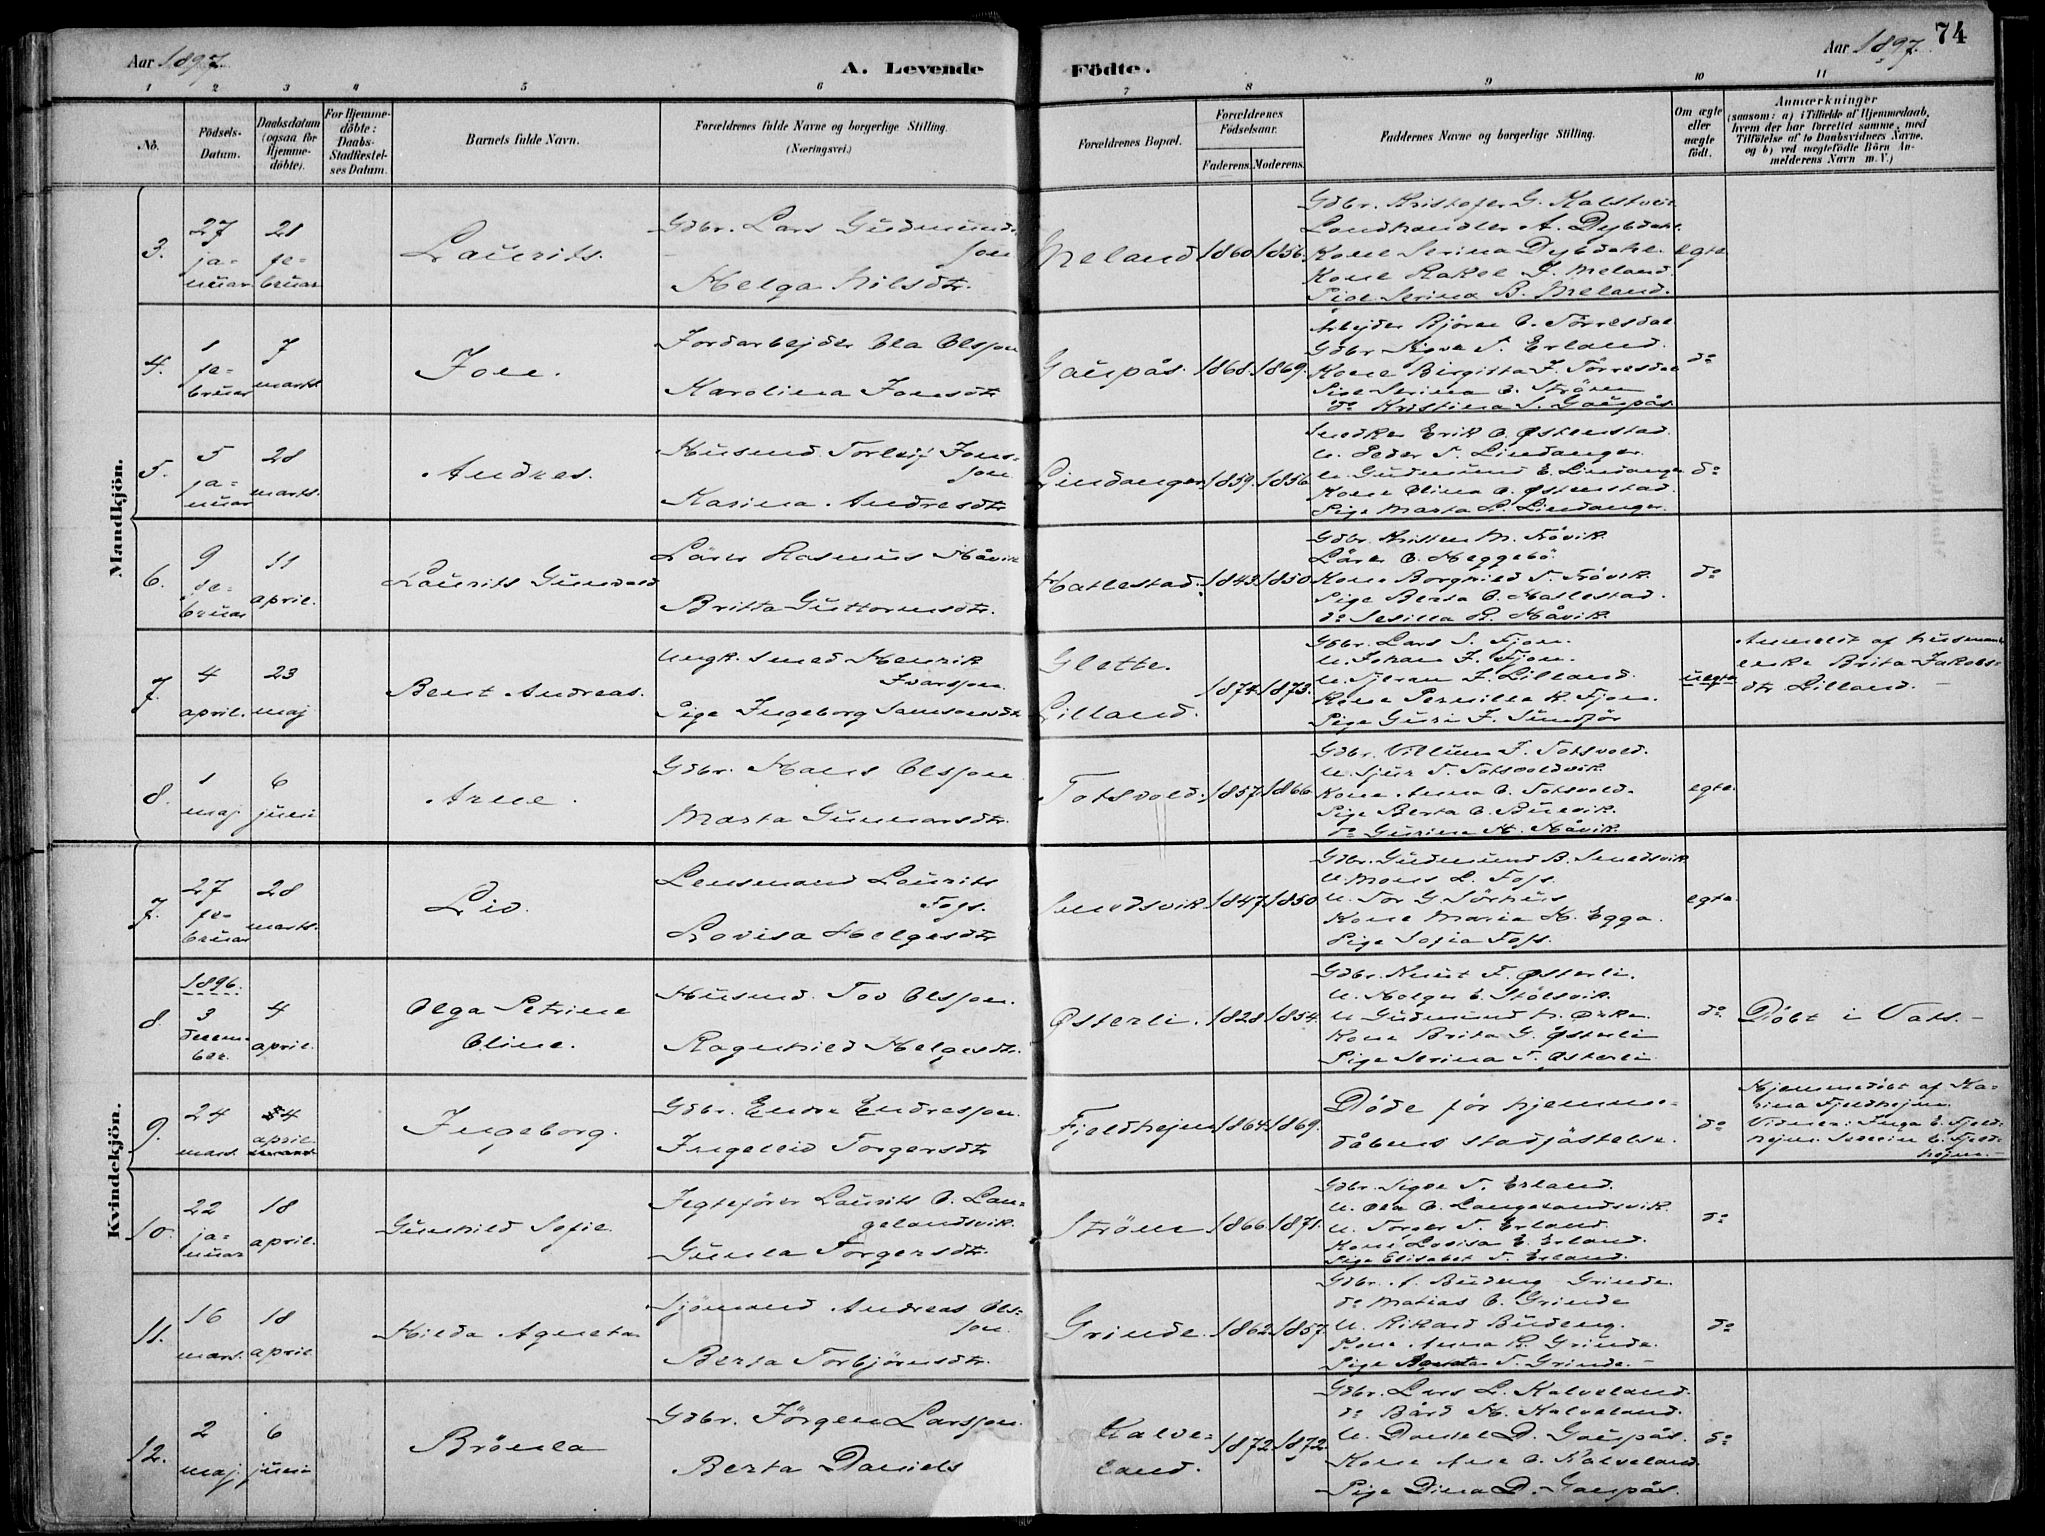 Aar 1897.
A. Levende
Födte.
Aar 1897.
74
1 2 3 4 5 6 7 8 9 10 11
No.
Födsels-
Datum.
Daabsdatum
(ogsaa for
Hjemme-
döbte).
For Hjemme-
döbte:
Daabs-
Stadfæstel-
ses Datum.
Barnets fulde Navn.
Forældrenes fulde Navne og borgerlige Stilling.
(Næringsvei.)
Forældrenes Bopæl.
Forældrenes
Födselsaar.
Faderens.
Moderens.
Faddernes Navne og borgerlige Stilling.
Om ægte
eller
uægte
født.
Anmærkninger
(saasom: a) i Tilfælde af Hjemmedaab,
hvem der har forrettet samme, med
Tilföielse af to Daabsvidners Navne,
og b) ved uægtefödte Börn An-
melderens Navn m. V.)
Mandkjön.
3.
27
ja-
nuar
21
fe-
bruar
Laurits.
Gdbr. Lars Gudmund-
son
Helga Nilsdtr.
Meland
1860
1856.
Gdbr. Kristofer G. Kalstveit
Landhandler A. Dybdahl.
Kone Serina Dybdahl.
Kone Rakel J. Meland.
Pige Serina B. Meland.
egte
4.
1
fe-
bruar
7
marts
Jone.
Jordarbejder Ola Olsson
Karolina Jonsdtr
Gaupås.
1868.
1869.
Arbejder Bjørn O. Törresdal
Gdbr Sigve T. Erland.
Kone Birgitta J. Törresdal
Pige Serina O. Ström
do Kristina S. Gaupås
do
5.
5
ja-
nuar
28
marts.
Andres.
Husmd Torleif Jons-
son
Karina Andresdtr
Lindanger
1859.
1856
Snedker Erik O. Østenstad.
U. Peder T. Lindanger.
U. Gudmund E. Lindanger
Kone Olina O. Østenstad.
Pige Marta L. Lindanger.
do
6.
9
fe-
bruar
11
april.
Laurits Gunvald
Lärer Rasmus Håvik
Britta Guttormsdtr.
Hatlestad.
1843.
1850
Gdbr. Kristen M. Frövik.
Lärer O. Heggebö.
Kone Borghild T. Frövik.
Pige Berta O. Hatlestad.
do Sesilia R. Håvik.
do
7.
4
april.
23
maj
Bent Andreas.
Ungk. Smed Henrik
Ivarsson.
Pige Ingeborg Samsonsdtr
Glette.
Lilland.
1874.
1873.
Gdbr. Lars S. Fjon.
U. Johan J. Fjon.
U. J. Lilland.
Kone Pernilla K. Fjon.
Pige Guri J. Sundför
uegte
Anmeldt af husmands-
enke Brita Jakobs-
dtr Lilland. -
8.
1
maj.
6
juni
Arne.
Gdbr. Hans Olsson
Marta Gunnarsdtr.
Totsvold.
1857.
1866.
Gdbr. Villum J. Totsvold.
U. Sjur T. Totsvoldvik.
Kone Anna O. Totsvold.
Pige Berta O. Buevik.
do Gurina H. Håvik.
egte.
Kvindekjön.
7.
27
fe-
bruar
28
marts.
Liv.
Lensmand Laurits
Fojs.
Lovisa Helgesdtr
Smedsvik
1847.
1850
Gdbr. Gudmund B. Smedsvik
U. Mons L. Fojs.
U. Tor G Sörhus
Kone Maria H. Egga.
Pige Sofia Fojs.
egte
8.
1896.
3
decem-
ber.
4
april.
Olga Petrine
Oline.
Husmd. Tov Olsson.
Ragnhild Helgesdtr.
Østerli.
1828
1854.
Gdbr. Knut T. Østerli.
U. Holger E. Stölsvik.
U Gudmund A. Ørke.
Kone Brita G. Østerli
Pige Serina T. Østerli
do
Döbt i Vats. -
9.
24
mars.
4
april.
Ingeborg.
Gdbr. Endre Endresson.
Ingeleid Torgersdtr
Fjeldhejm
1864.
1869.
Döde för hjemme-
dåbens stadfästelse.
do
Hjemmedöbt af Ka-
rina Fjeldhejm.
Vidner: Inga E. Fjeld-
hejm. Severin E. Fjeld-
hejm. -
10.
22
ja-
nuar
18
april.
Gunhild Sofie.
Jegtefører Laurits O. Lan-
gelandsvik.
Gunla Torgersdtr.
Ström
1866
1871.
Gdbr. Sigve T. Erland.
U. Ola O. Langelandsvik.
U. Torger T. Erland.
Kone Lovisa E. Erland.
Pige Elisabet T. Erland.
do
11.
16
mars.
18
april
Hilda Agneta
Sjömand Andreas Ols-
son.
Berta Torbjörnsdtr.
Grinde.
1862.
1857.
Gdbr. A. Budeng Grinde.
do Matias O. Grinde
U. Rikard Budeng.
Kone Anna R. Grinde.
Pige Agneta T. Grinde. -
do
12.
2
maj
6
juni
Brönla
Gdbr. Jörgen Larsson.
Berta Daniels
Kalve-
land.
1872.
1872
Gdbr. Lars L. Kalveland.
do Bård H. Kalveland.
U. Daniel D. Gaupås.
Kone Ane O. Kalveland
Pige Dina D. Gaupås.
do